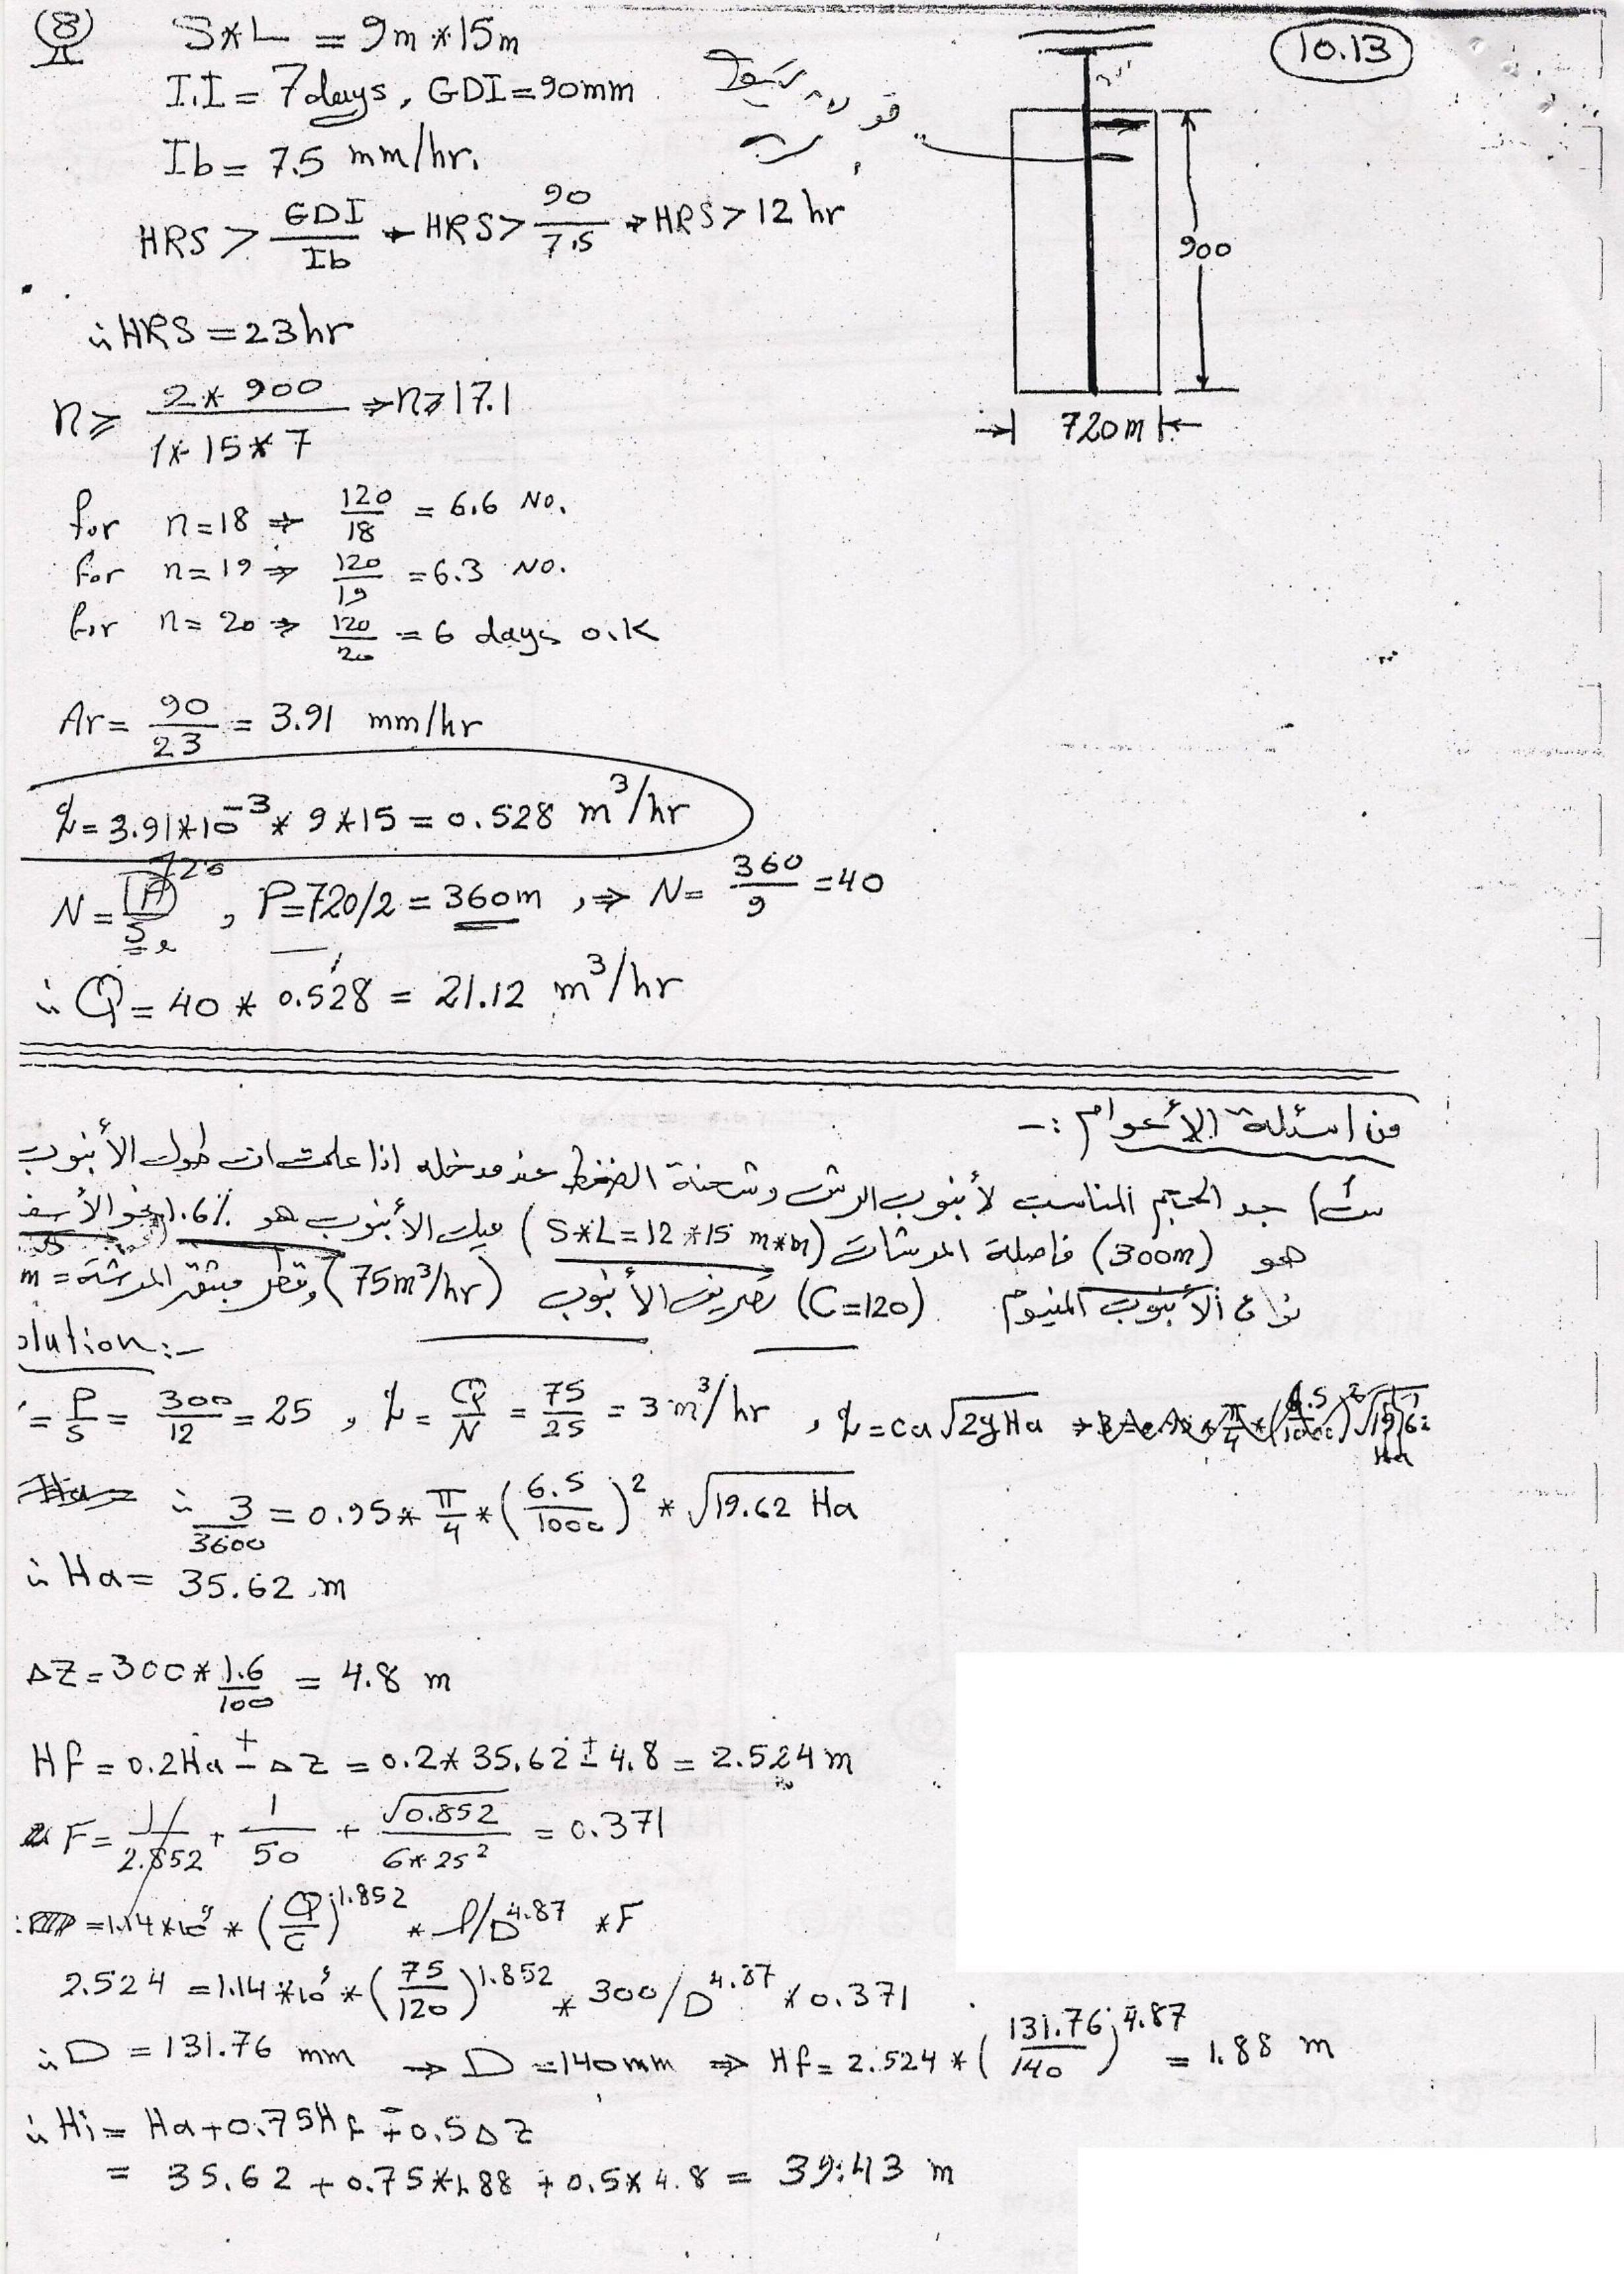 (8)
S*L = 9m*15m
10.13
I.I = 7days, GDI=90mm
Ib= 7.5 mm/hr.
HRS > GDI/Ib → HRS > 90/7.5 → HRS > 12 hr
900
720m
∴ HRS = 23hr
n ≥ 2*900 / 1*15*7 ⇒ n ≥ 17.1
for n=18 ⇒ 120/18 = 6.6 No.
for n=19 ⇒ 120/19 = 6.3 No.
for n=20 ⇒ 120/20 = 6 days o.k
Ar = 90/23 = 3.91 mm/hr
q = 3.91*10^-3 * 9*15 = 0.528 m^3/hr
N = P/S, P=720/2 = 360m, ⇒ N = 360/9 = 40
∴ Q = 40 * 0.528 = 21.12 m^3/hr
من اسئلة الأعوام :-
جد الحجم المناسب لأنبوب الرش وشحنة الضغط عند مدخله اذا علمت ان طول الأنبوب
هو (300m) فاصلة المرشات (S*L=12*15 m*m) ميل الأنبوب هو 1.6% نحو الأسفل
الأنبوب المنيوم (C=120) تصريف الأنبوب (75m^3/hr) وقطر مبثق المرشة = m
olution:-
= P/S = 300/12 = 25, q = Q/N = 75/25 = 3 m^3/hr, q = ca√2gHa
∴ 3/3600 = 0.95 * π/4 * (6.5/1000)^2 * √19.62 Ha
∴ Ha = 35.62 m
ΔZ = 300 * 1.6/100 = 4.8 m
Hf = 0.2Ha ± ΔZ = 0.2*35.62 ± 4.8 = 2.524 m
F = 1/2.852 + 1/50 + √0.852/6*25^2 = 0.371
= 1.14*10^9 * (Q/C)^1.852 * l/D^4.87 * F
2.524 = 1.14*10^9 * (75/120)^1.852 * 300/D^4.87 * 0.371
∴ D = 131.76 mm ⇒ D = 140mm ⇒ Hf = 2.524 * (131.76/140)^4.87 = 1.88 m
∴ Hi = Ha + 0.75Hf ∓ 0.5ΔZ
= 35.62 + 0.75*1.88 + 0.5*4.8 = 39.43 m